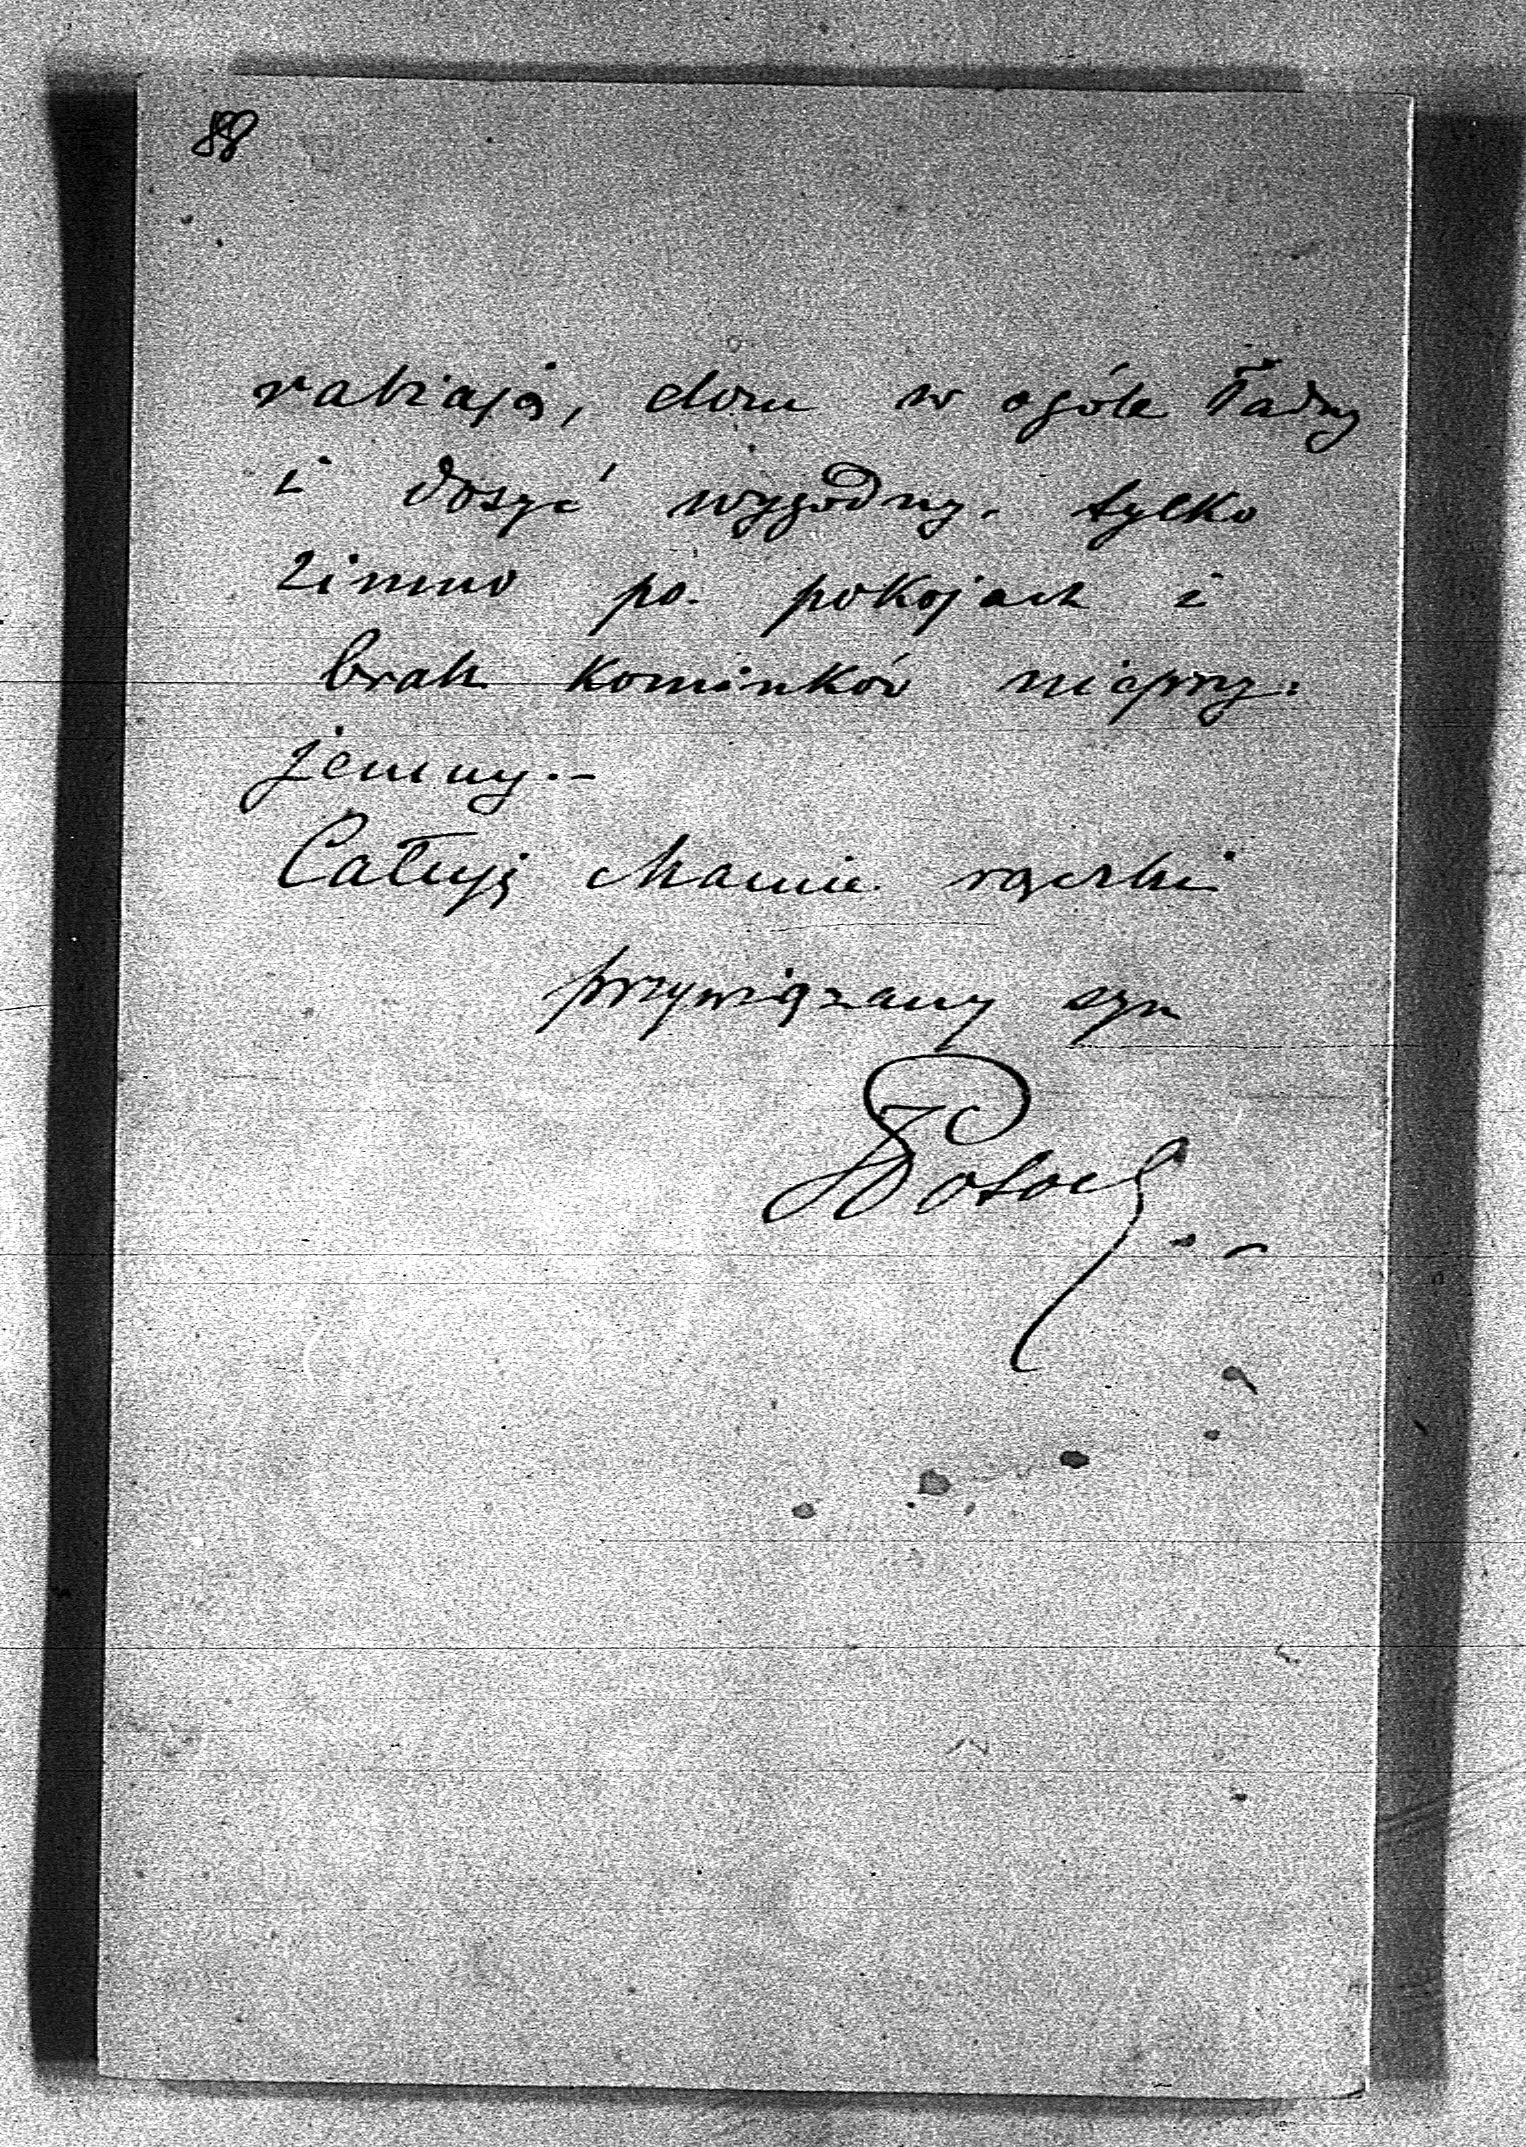 88
rabiają, dom w ogóle ładny
i dosyć wygodny. tylko
zimno po. pokojach i
brak kominków nieprzy:
jemny.-
Całuję Mamie rączki
przywiązany syn
Potocki